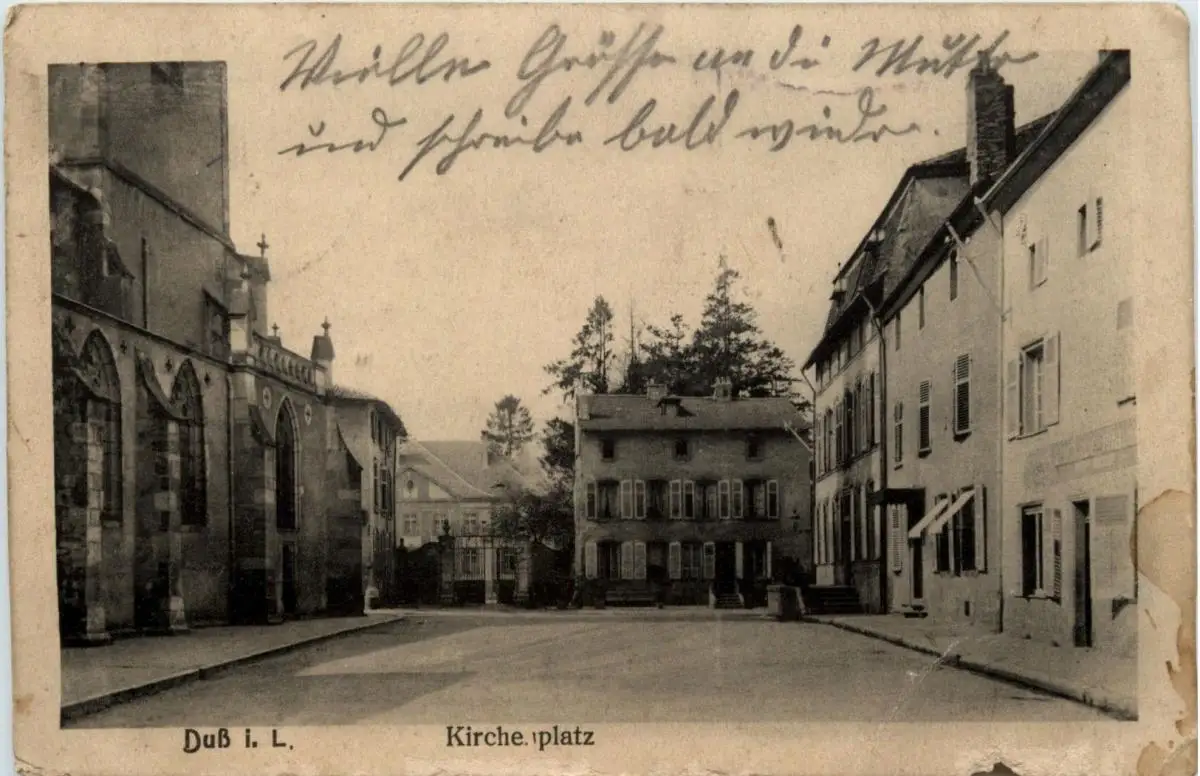 Vielle Grösse an di Mutter
und schreibe bald wieder.
Duß i. L.
Kirchenplatz